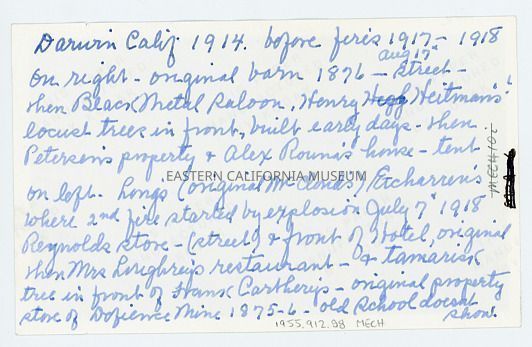 Darwin Calif 1914. before fires 1917 - 1918
aug 17"
On right - original barn 1876 - street -
then Black Metal Saloon, Henry Heitman's'
locust trees in front, built early days - then
Petersen's property & Alex Rouna's house - tent
EASTERN CALIFORNIA MUSEUM
on left. Longs (original Mc Clouds) Etcharrens
where 2nd fire started by explosion July 7" 1918
Reynolds store - (street) & front of Hotel, original
then Mrs Loughreys restaurant - & tamarisk
tree in front of Frank Cartherys - original property
store of Defience Mine 1875-6 - old School doesnt
show.
1955.912.98 MECH
MECH 102